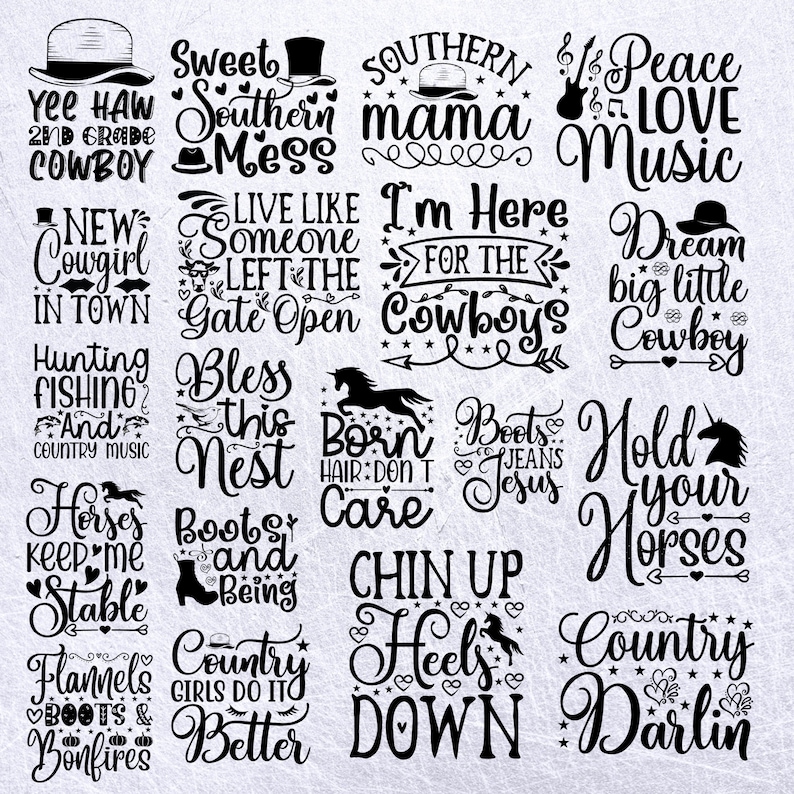 YEE HAW
2ND GRADE
COWBOY
Sweet
Southern
Mess
SOUTHERN
mama
Peace
LOVE
Music
NEW
Cowgirl
IN TOWN
LIVE LIKE
Someone
LEFT THE
Gate Open
I'm Here
FOR THE
Cowboys
Dream
big little
Cowboy
Hunting
FISHING
And
COUNTRY MUSIC
Bless
this
Nest
Born
HAIR DON T
Care
Boots
JEANS
Jesus
Hold
your
Horses
Horses
KEEP ME
Stable
Boots
and
Being
CHIN UP
Heels
DOWN
Flannels
BOOTS &
Bonfires
Country
GIRLS DO IT
Better
Country
Darlin